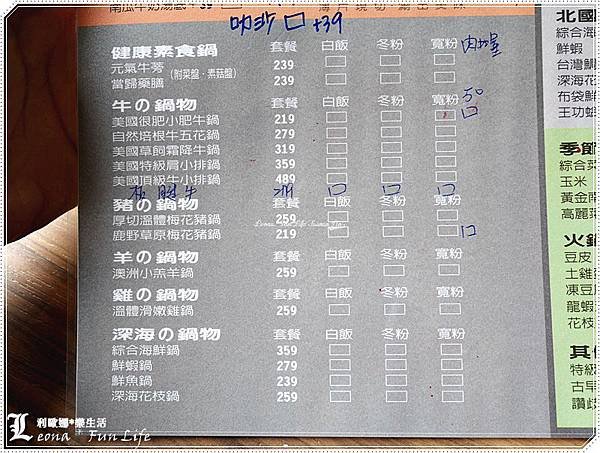 南瓜牛奶湯底 +39
叻沙 口 +39
健康素食鍋 套餐 白飯 冬粉 寬粉
元氣牛蒡 (附菜盤、素菇盤) 239
當歸藥膳 239
牛の鍋物 套餐 白飯 冬粉 寬粉
美國很肥小肥牛鍋 219
自然培根牛五花鍋 279
美國草飼霜降牛鍋 319
美國特級肩小排鍋 359
美國頂級牛小排鍋 489
豬の鍋物 套餐 白飯 冬粉 寬粉
厚切溫體梅花豬鍋 259
鹿野草原梅花豬鍋 219
羊の鍋物 套餐 白飯 冬粉 寬粉
澳洲小羔羊鍋 259
雞の鍋物 套餐 白飯 冬粉 寬粉
溫體滑嫩雞鍋 259
深海の鍋物 套餐 白飯 冬粉 寬粉
綜合海鮮鍋 359
鮮蝦鍋 279
鮮魚鍋 239
深海花枝鍋 259
北國
綜合海
鮮蝦
台灣鯛
深海花
布袋鮮
王功蛤
季節
綜合菜
玉米
黃金南
高麗菜
火鍋
豆皮
土雞蛋
凍豆
龍蝦
花枝
其他
特級
古早
讚岐
利歐娜*樂生活
Leona Fun Life